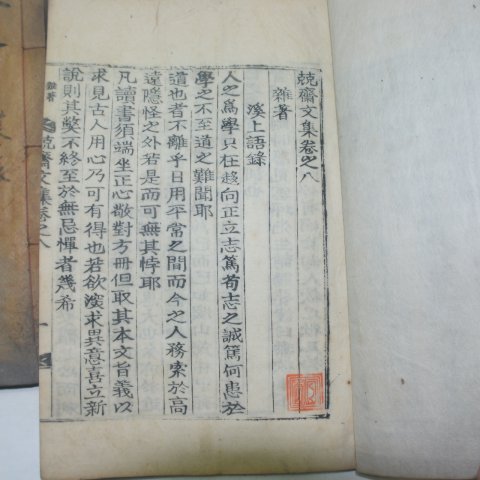 兢齋文集卷之八
雜著
溪上語錄
人之爲學只在趍向正立志篤苟志之誠篤何患於
學之不至道之難聞耶
道也者不離乎日用平常之間而今之人務索於高
遠隱怪之外若是而可無其悖耶
凡讀書須端坐正心敬對方冊但取其本文旨義以
求見古人用心乃可有得也若欲深求異意喜立新
說則其獘不終至於無忌憚者幾希
雜著
兢齋文集卷之八
一